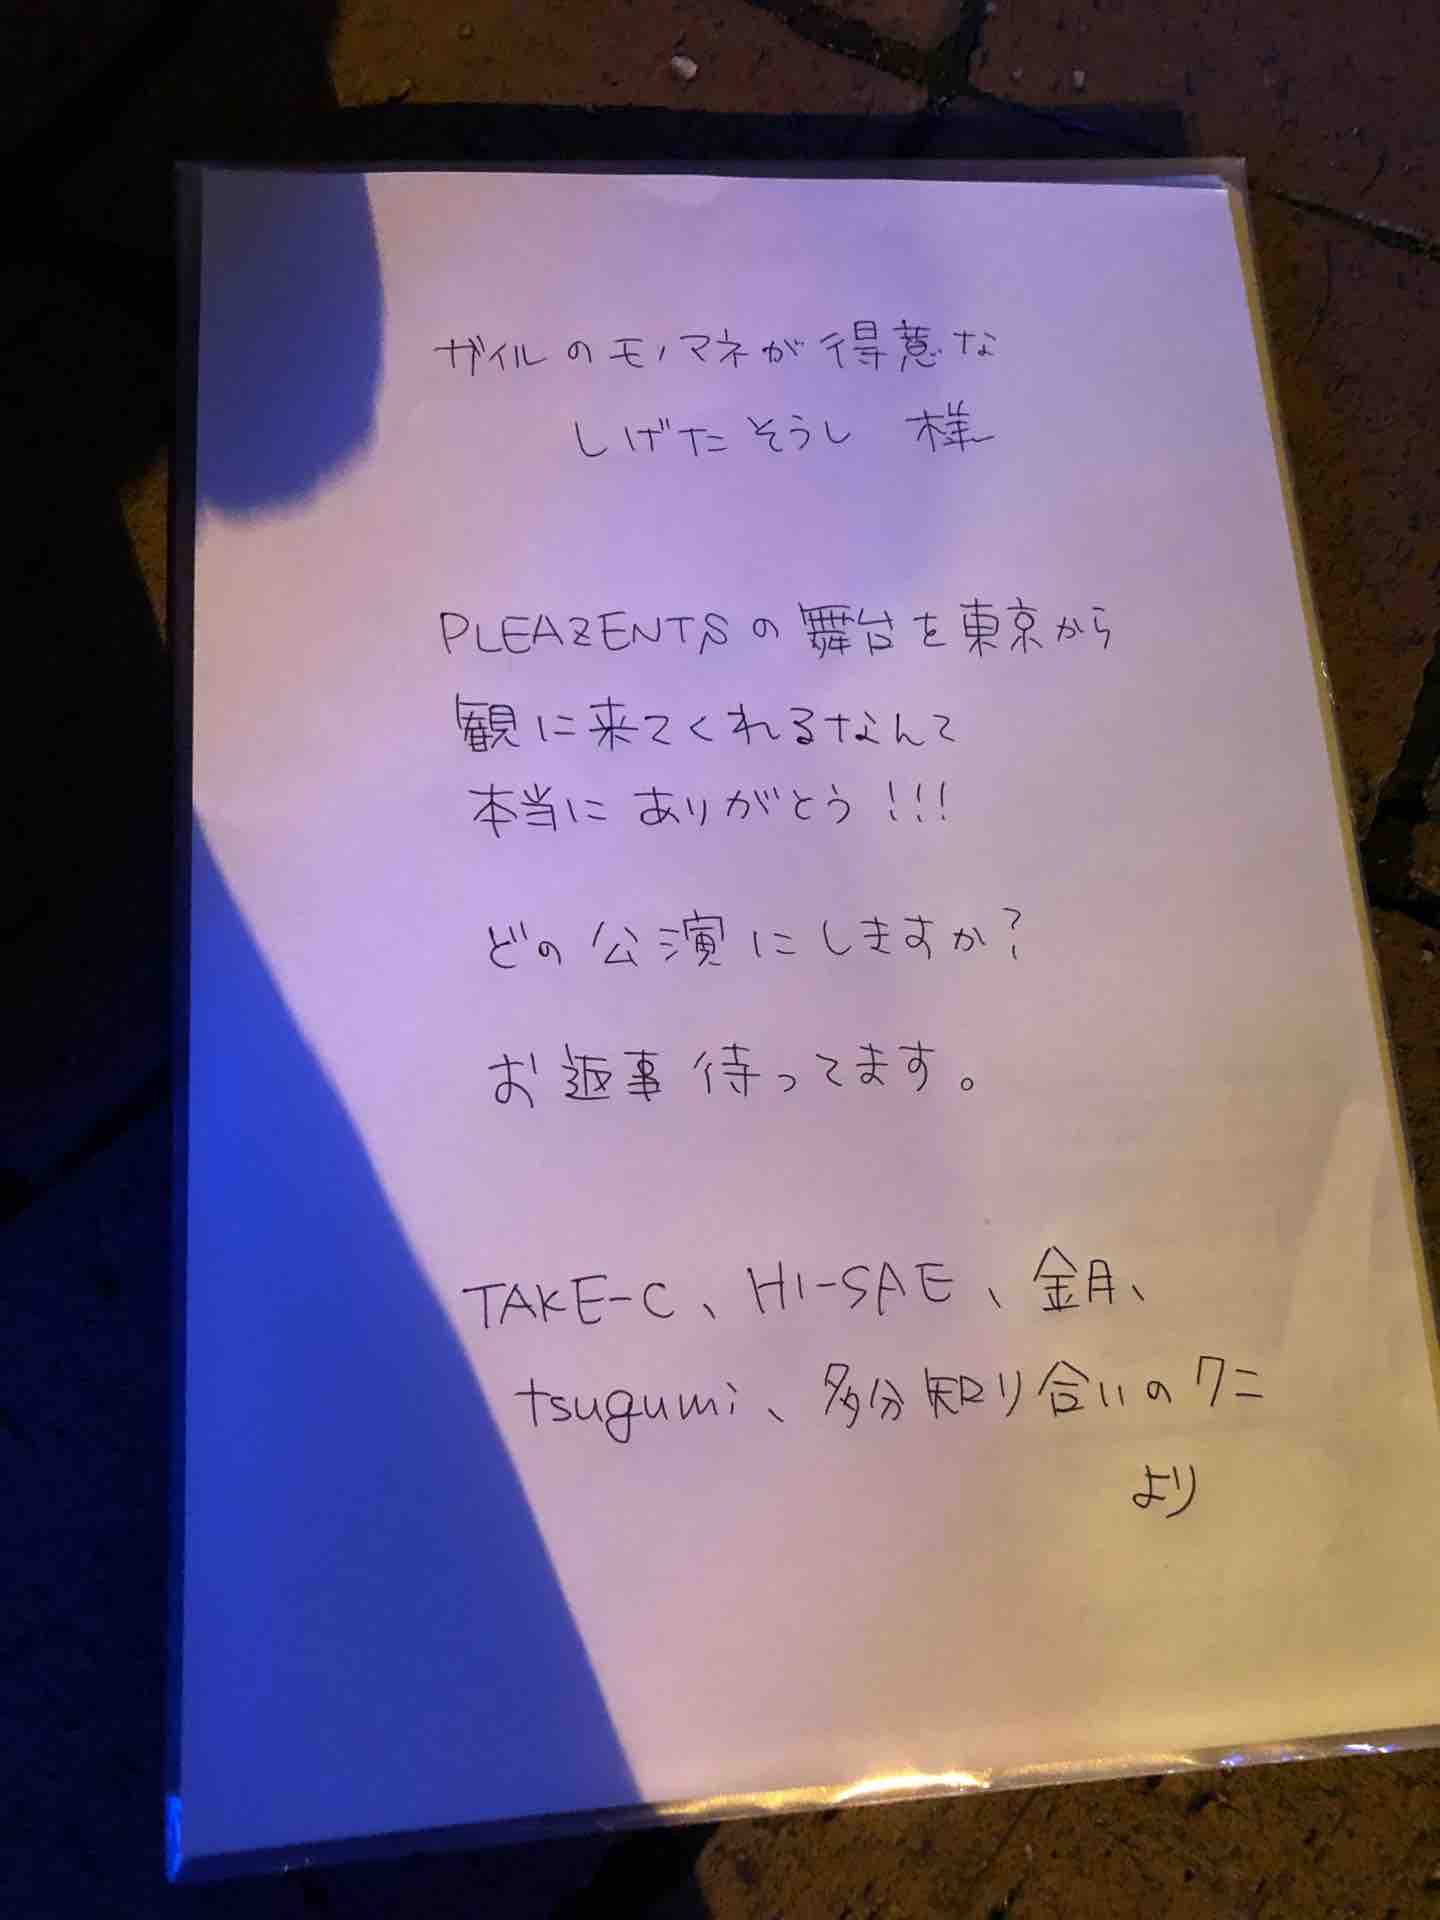 ガイルのモノマネが得意な
しげたそうし 様
PLEAZENTSの舞台を東京から
観に来てくれるなんて
本当にありがとう!!!
どの公演にしますか?
お返事待ってます。
TAKE-C、HI-SAE、金月、
tsugumi、多分知り合いのクニ
より